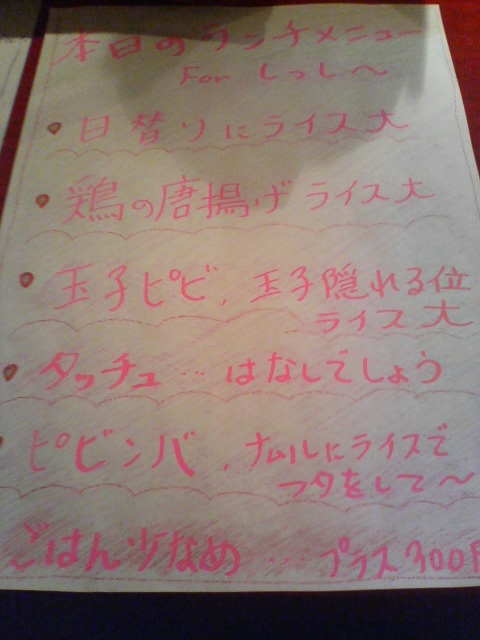 本日のランチメニュー
For しっし〜
日替りにライス大
鶏の唐揚げ ライス大
玉子ピビ、玉子隠れる位
ライス大
タッチュ…はなしでしょう
ピビンバ、ナムルにライスで
フタをして〜
ごはん少なめ…プラス300円